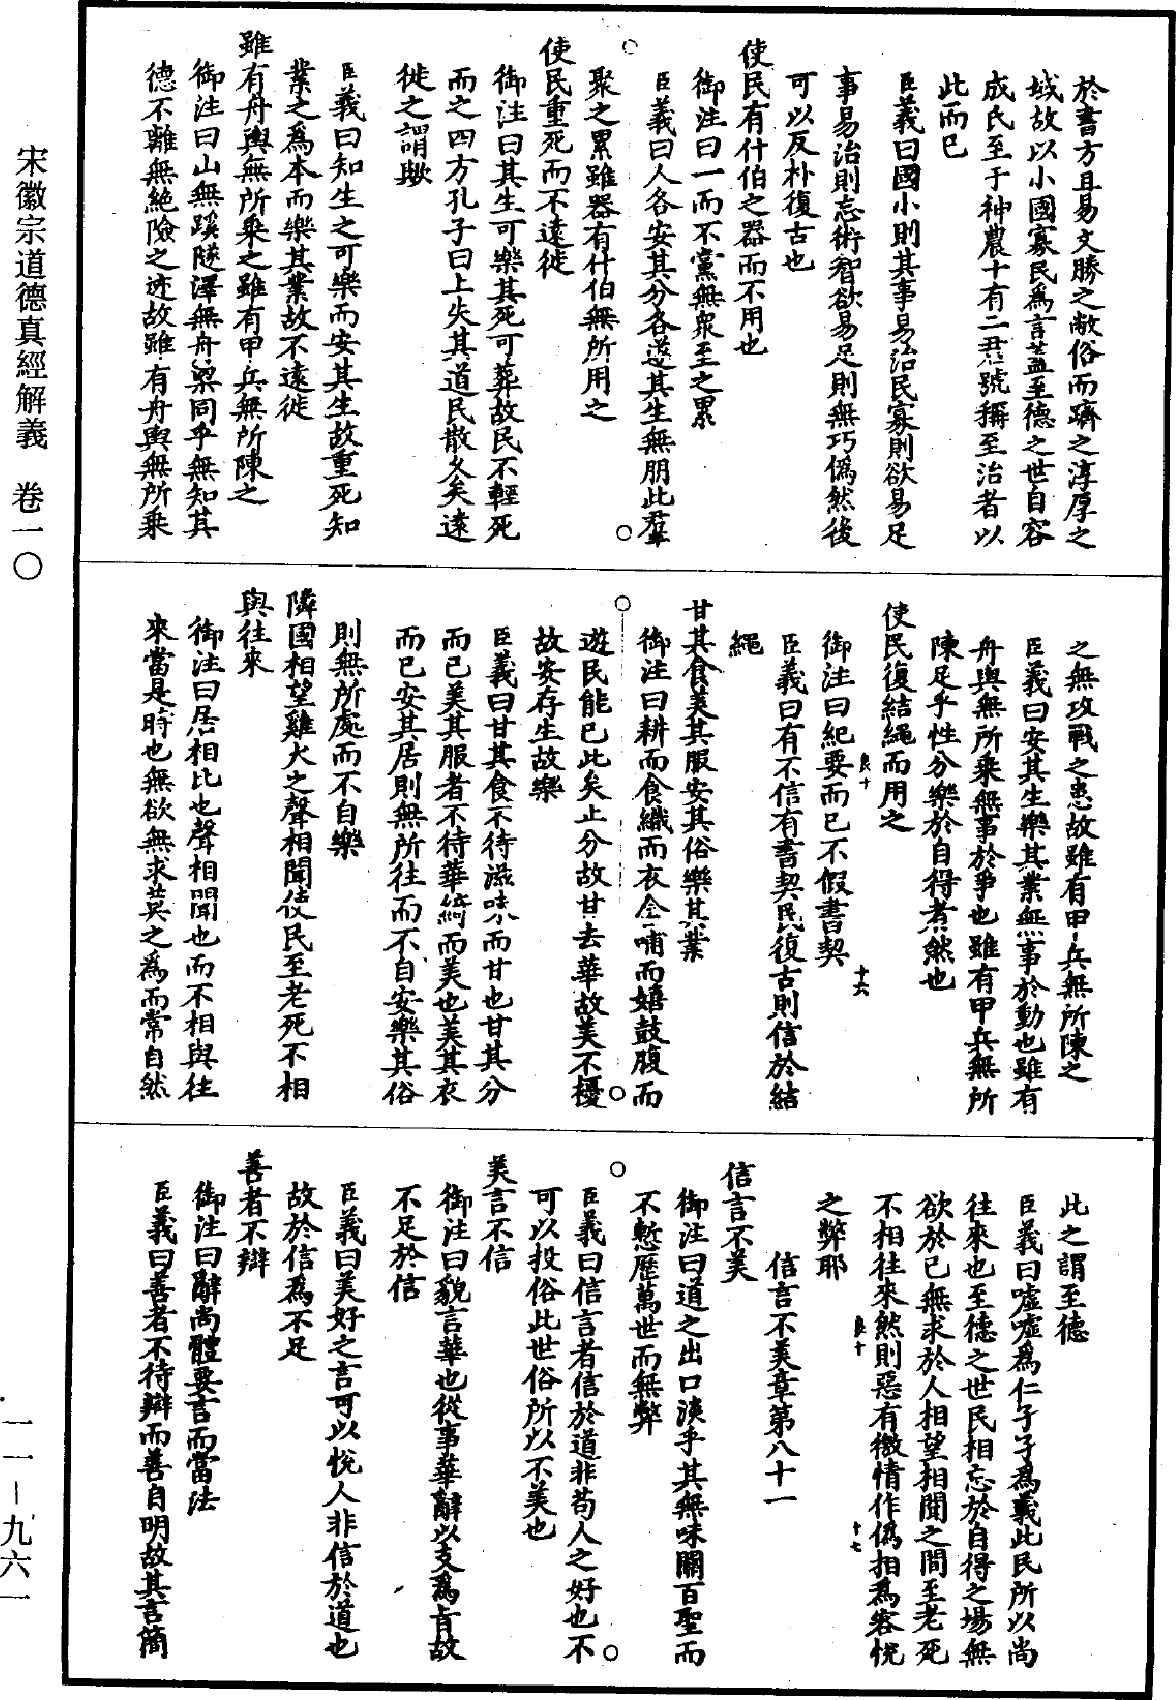 宋徽宗道德真經解義　卷一〇
一一－九六一
於書方且易文勝之敝俗而躋之淳厚之
域故以小國寡民爲言蓋至德之世自容
成氏至于神農十有二君號稱至治者以
此而已
臣義曰國小則其事易治民寡則欲易足
事易治則忘術智欲易足則無巧僞然後
可以反朴復古也
使民有什伯之器而不用也
御注曰一而不黨無衆至之累
臣義曰人各安其分各遂其生無朋比羣
聚之累雖器有什伯無所用之
使民重死而不遠徙
御注曰其生可樂其死可葬故民不輕死
而之四方孔子曰上失其道民散久矣遠
徙之謂歟
臣義曰知生之可樂而安其生故重死知
業之爲本而樂其業故不遠徙
雖有舟輿無所乘之雖有甲兵無所陳之
御注曰山無蹊隧澤無舟梁同乎無知其
德不離無絕險之迹故雖有舟輿無所乘
之無攻戰之患故雖有甲兵無所陳之
臣義曰安其生樂其業無事於動也雖有
舟輿無所乘無事於爭也雖有甲兵無所
陳足乎性分樂於自得者然也
使民復結繩而用之
良十
十六
御注曰紀要而已不假書契
臣義曰有不信有書契民復古則信於結
繩
甘其食美其服安其俗樂其業
御注曰耕而食織而衣含哺而嬉鼓腹而
遊民能已此矣止分故甘去華故美不擾
故安存生故樂
臣義曰甘其食不待滋味而甘也甘其分
而已美其服者不待華綺而美也美其衣
而已安其居則無所往而不自安樂其俗
則無所處而不自樂
隣國相望雞犬之聲相聞使民至老死不相
與往來
御注曰居相比也聲相聞也而不相與往
來當是時也無欲無求莫之爲而常自然
此之謂至德
臣義曰噓噓爲仁孑孑爲義此民所以尚
往來也至德之世民相忘於自得之場無
欲於己無求於人相望相聞之間至老死
不相往來然則惡有徼情作僞相爲容悅
之弊耶
良十
十七
信言不美章第八十一
信言不美
御注曰道之出口淡乎其無味關百聖而
不慙歷萬世而無弊
臣義曰信言者信於道非苟人之好也不
可以投俗此世俗所以不美也
美言不信
御注曰貌言華也從事華辭以支爲旨故
不足於信
臣義曰美好之言可以悅人非信於道也
故於信爲不足
善者不辯
御注曰辭尚體要言而當法
臣義曰善者不待辯而善自明故其言簡